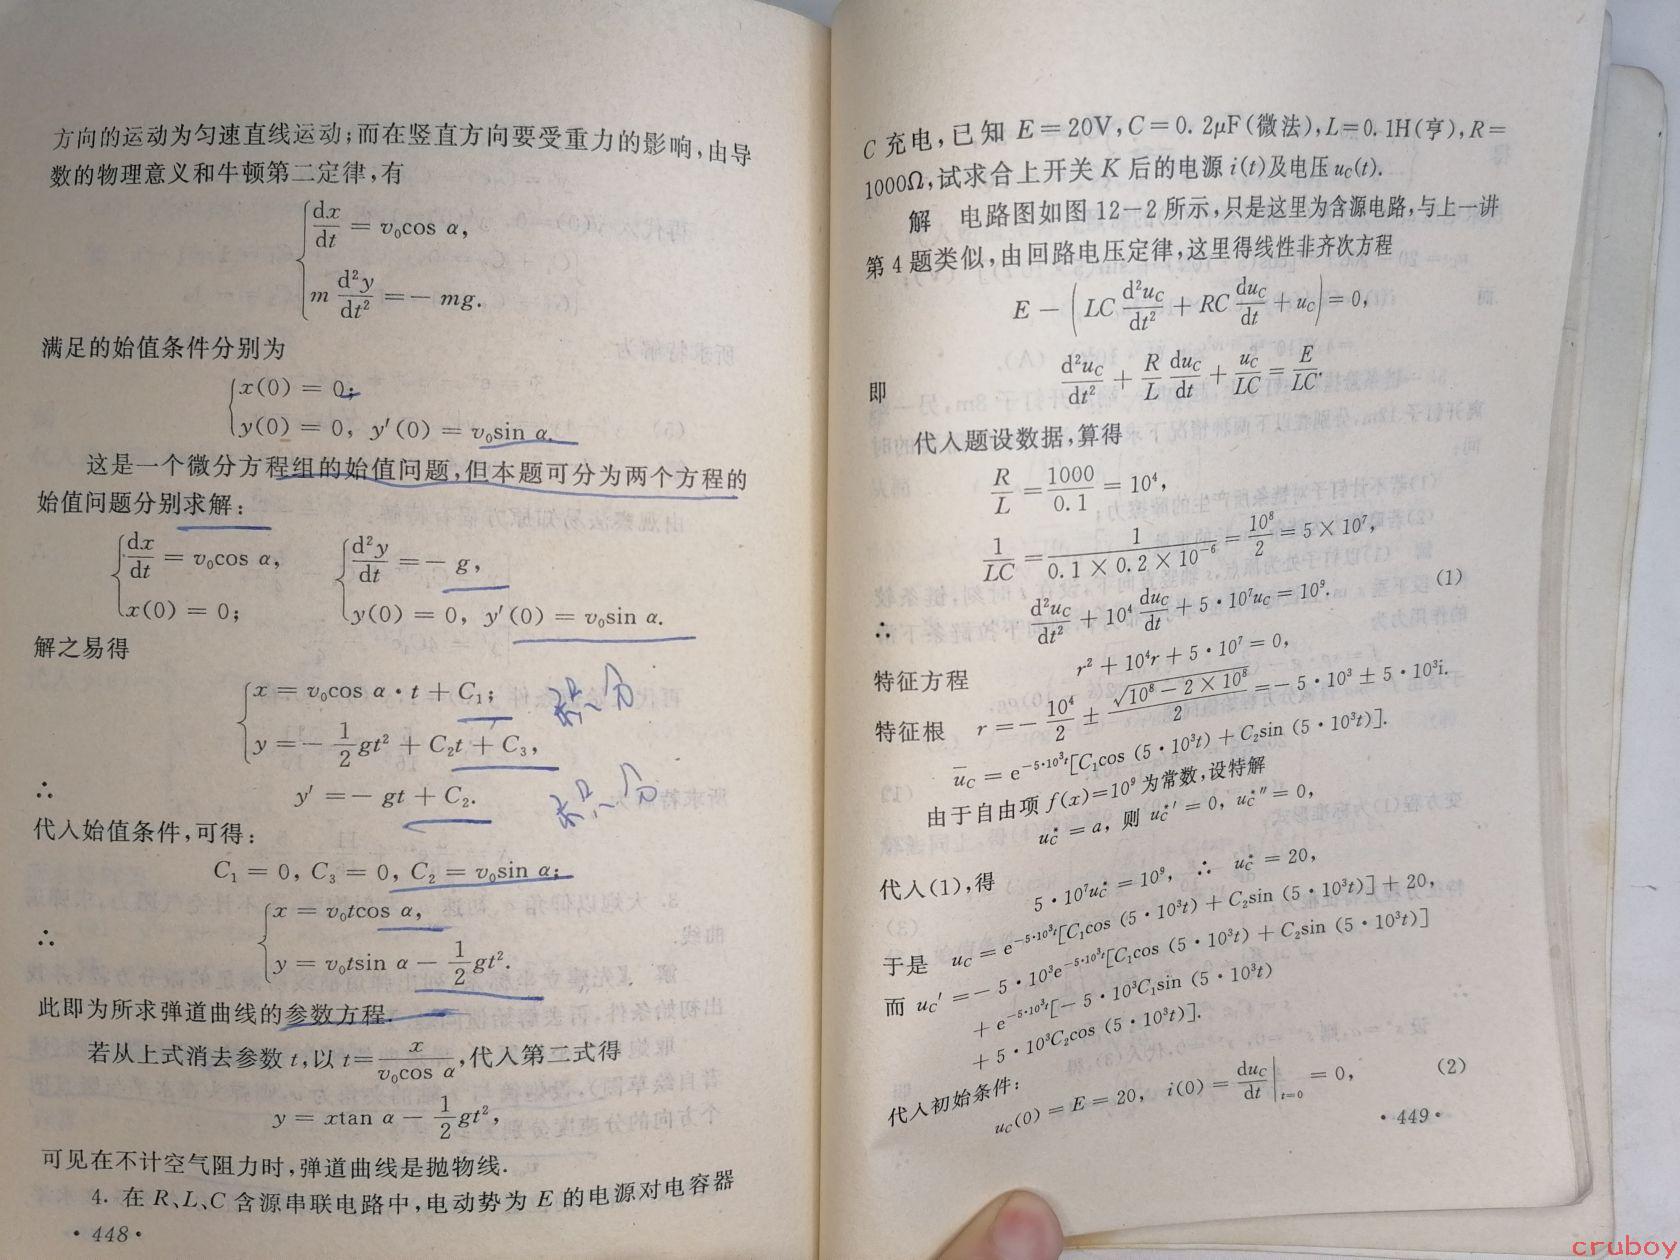 方向的运动为匀速直线运动;而在竖直方向要受重力的影响,由导
数的物理意义和牛顿第二定律,有
dx/dt = v₀cos α,
m d²y/dt² = − mg.
满足的始值条件分别为
x(0) = 0;
y(0) = 0, y′(0) = v₀sin α.
这是一个微分方程组的始值问题,但本题可分为两个方程的
始值问题分别求解:
dx/dt = v₀cos α, d²y/dt = − g,
x(0) = 0; y(0) = 0, y′(0) = v₀sin α.
解之易得
x = v₀cos α·t + C₁;
y = − 1/2 gt² + C₂t + C₃,
∴ y′ = − gt + C₂.
代入始值条件,可得:
C₁ = 0, C₃ = 0, C₂ = v₀sin α;
x = v₀tcos α,
∴
y = v₀tsin α − 1/2 gt².
此即为所求弹道曲线的参数方程.
若从上式消去参数 t,以 t= x/(v₀cos α),代入第二式得
y = xtan α − 1/2 gt²,
可见在不计空气阻力时,弹道曲线是抛物线.
4. 在 R、L、C 含源串联电路中,电动势为 E 的电源对电容器
·448·
C 充电,已知 E=20V,C=0.2μF(微法),L=0.1H(亨),R=
1000Ω,试求合上开关 K 后的电源 i(t)及电压 u_C(t).
解 电路图如图 12−2 所示,只是这里为含源电路,与上一讲
第 4 题类似,由回路电压定律,这里得线性非齐次方程
E − (LC d²u_C/dt² + RC du_C/dt + u_C) = 0,
即 d²u_C/dt² + R/L du_C/dt + u_C/LC = E/LC.
代入题设数据,算得
R/L = 1000/0.1 = 10⁴,
1/LC = 1/(0.1 × 0.2 × 10⁻⁶) = 10⁸/2 = 5 × 10⁷,
∴ d²u_C/dt² + 10⁴ du_C/dt + 5·10⁷u_C = 10⁹. (1)
特征方程 r² + 10⁴r + 5·10⁷ = 0,
特征根 r = − 10⁴/2 ± √(10⁸ − 2 × 10⁸)/2 = − 5·10³ ± 5·10³i.
ū_C = e^(−5·10³t)[C₁cos (5·10³t) + C₂sin (5·10³t)].
由于自由项 f(x)=10⁹ 为常数,设特解
u_C* = a, 则 u_C*′ = 0, u_C*″ = 0,
代入(1),得 5·10⁷u_C* = 10⁹, ∴ u_C* = 20,
于是 u_C = e^(−5·10³t)[C₁cos (5·10³t) + C₂sin (5·10³t)] + 20,
而 u_C′ = − 5·10³e^(−5·10³t)[C₁cos (5·10³t) + C₂sin (5·10³t)]
+ e^(−5·10³t)[− 5·10³C₁sin (5·10³t)
+ 5·10³C₂cos (5·10³t)].
代入初始条件:
u_C(0) = E = 20, i(0) = du_C/dt|t=0 = 0, (2)
·449·
cruboy